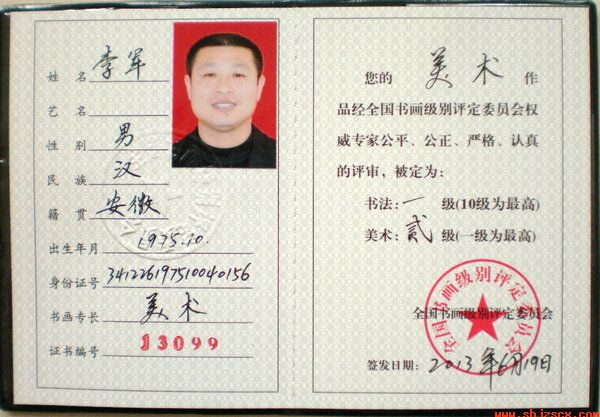 姓名 李军
艺名
性别 男
民族 汉
籍贯 安徽
出生年月 1975.10.
身份证号 341226197510040156
书画专长 美术
证书编号 13099
您的 美术 作
品经全国书画级别评定委员会权
威专家公平、公正、严格、认真
的评审，被定为：
书法：一 级(10级为最高)
美术：贰 级(一级为最高)
全国书画级别评定委员会
全国书画级别评定委员会
签发日期：2013年6月19日
www.shjzscx.com